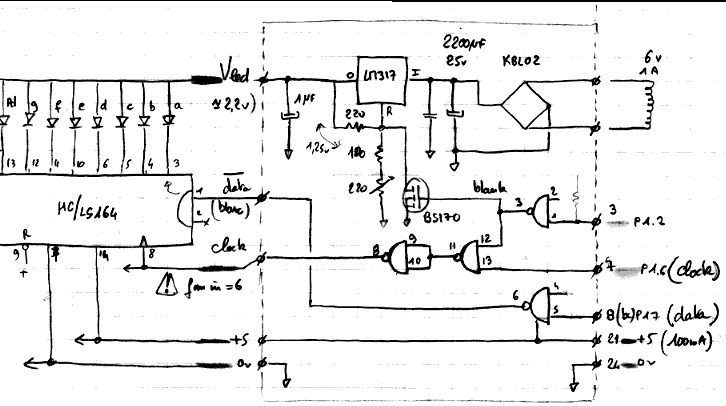 2200µF
25v
KBL02
6v
1A
Vled
≈2,2v)
O
LM317
I
1µF
220
R
1,25v
180
220
Ad g f e d c b a
13 12 11 10 6 5 4 3
HC/LS164
1
data
(blanc)
2
BS170
blank
3
2
1
3 P1.2
R
9
+
14
8
clock
8
9
10
11
12
13
P1.6 (clock)
fan in = 6
6
4
5
8 (b) P17 (data)
+5
21 +5 (100mA)
0v
24 0v